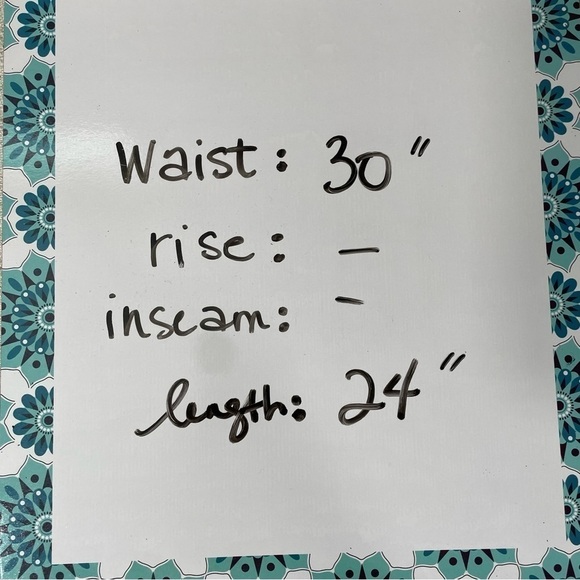 Waist: 30"
rise: –
inseam: –
length: 24"